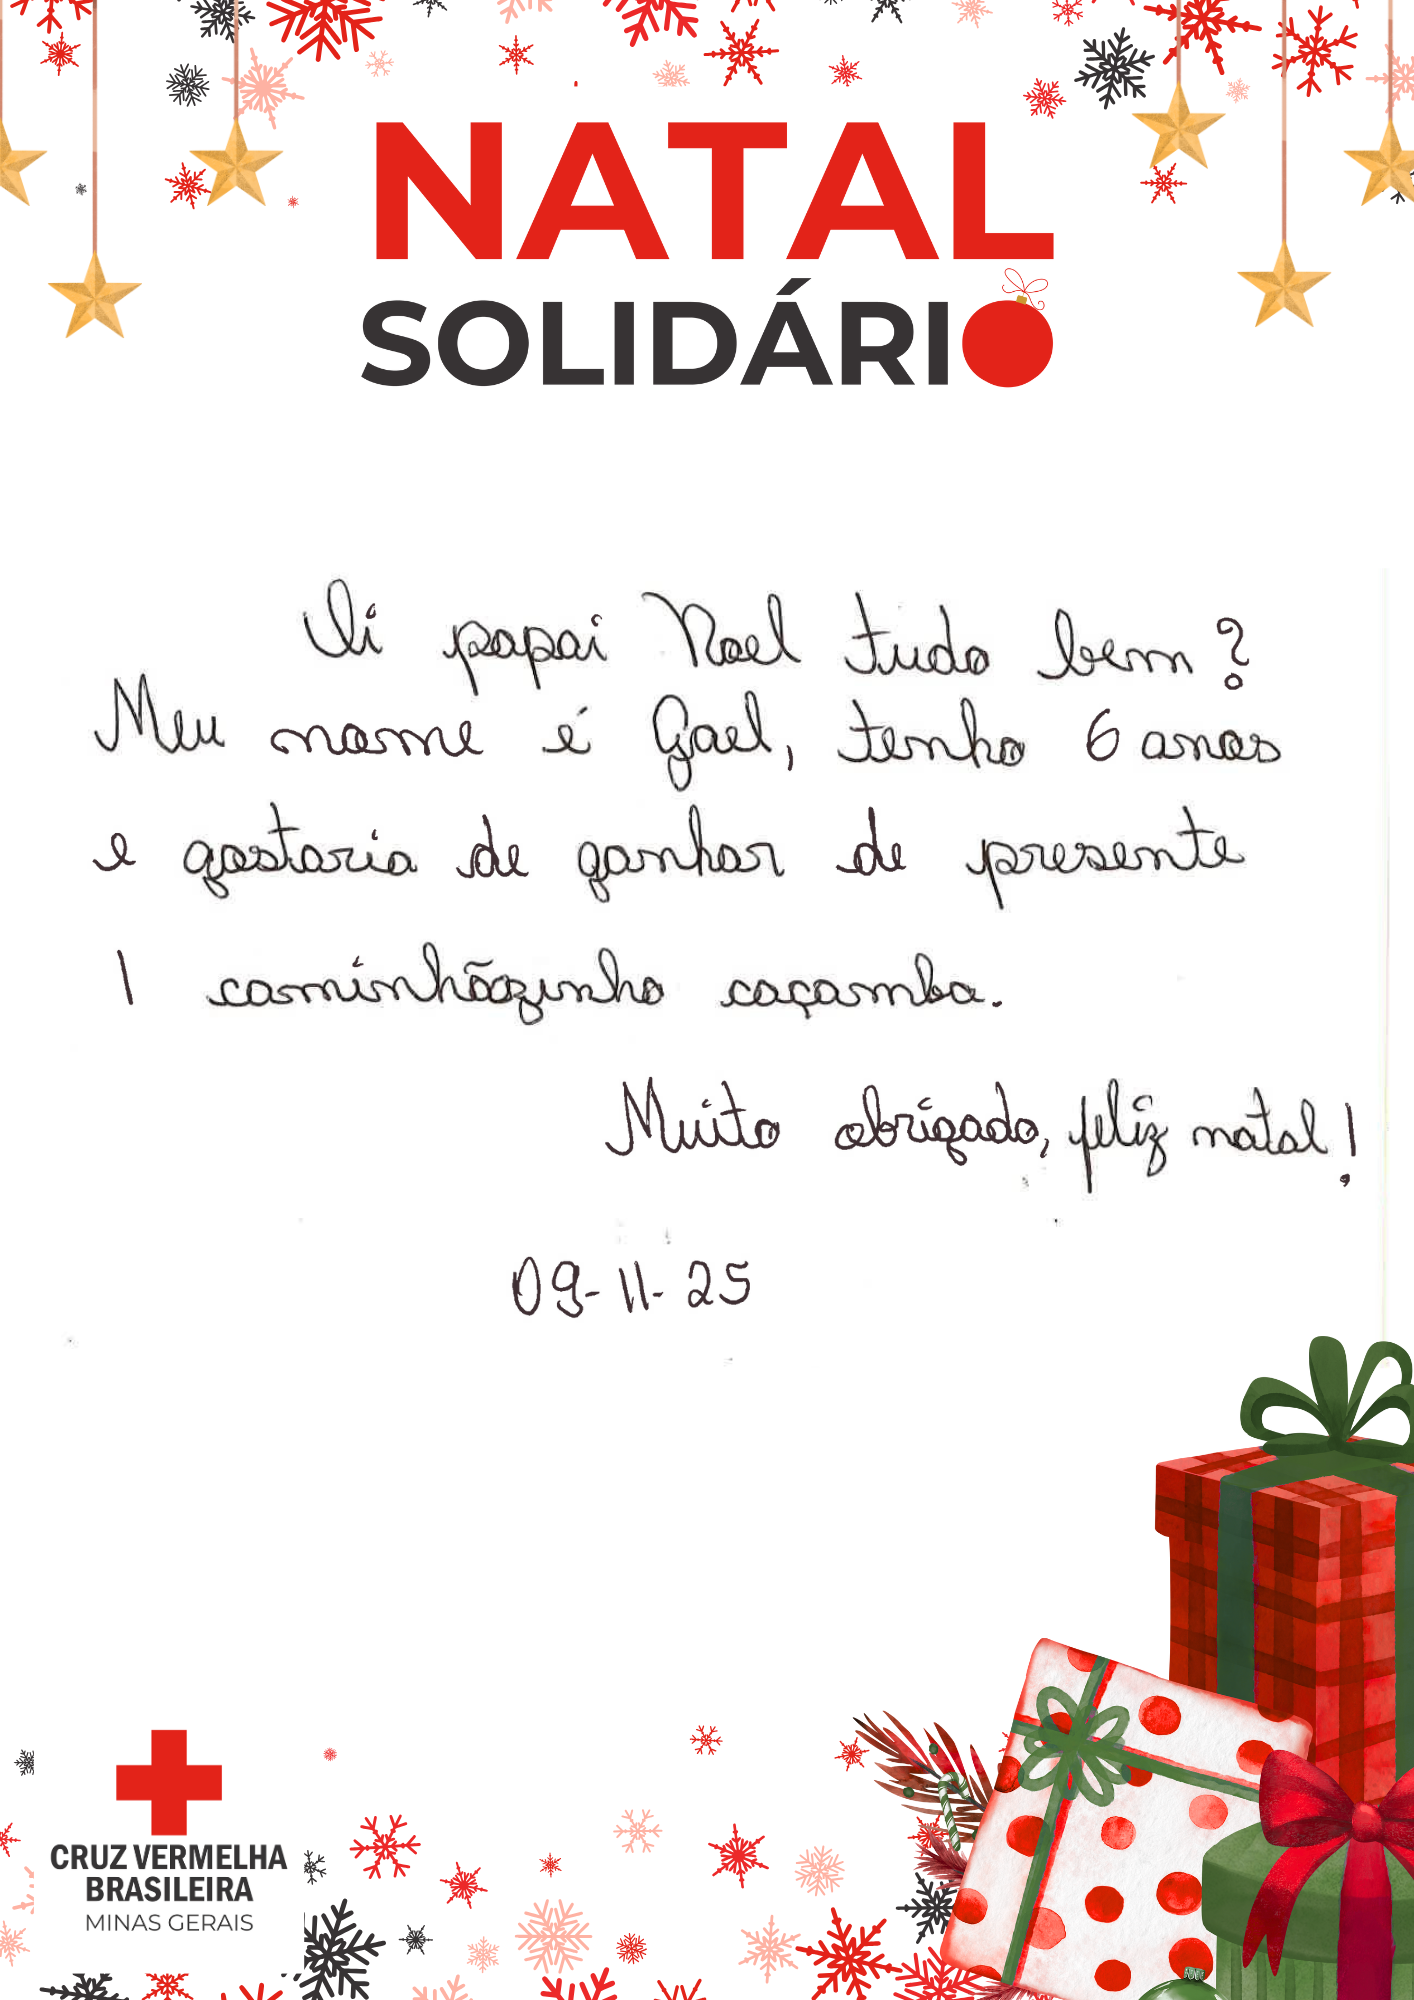 NATAL
SOLIDÁRIO
Oi papai Noel tudo bem?
Meu nome é Gael, tenho 6 anos
e gostaria de ganhar de presente
1 caminhãozinho caçamba.
Muito obrigado, feliz natal!
09-11-25
CRUZ VERMELHA
BRASILEIRA
MINAS GERAIS